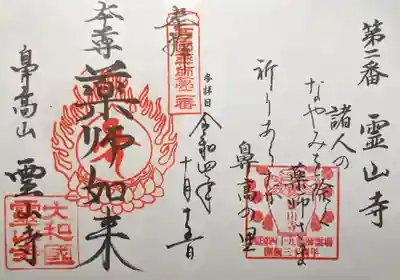 第二番 霊山寺
諸人の
なやみを除く
薬師さま
祈りあらたか
鼻高の里
西国四十九薬師霊場
参拝日
令和四年十月
奉拝
西国薬師第二番
本尊 薬師如来
鼻高山 霊山寺
大和國
霊山寺